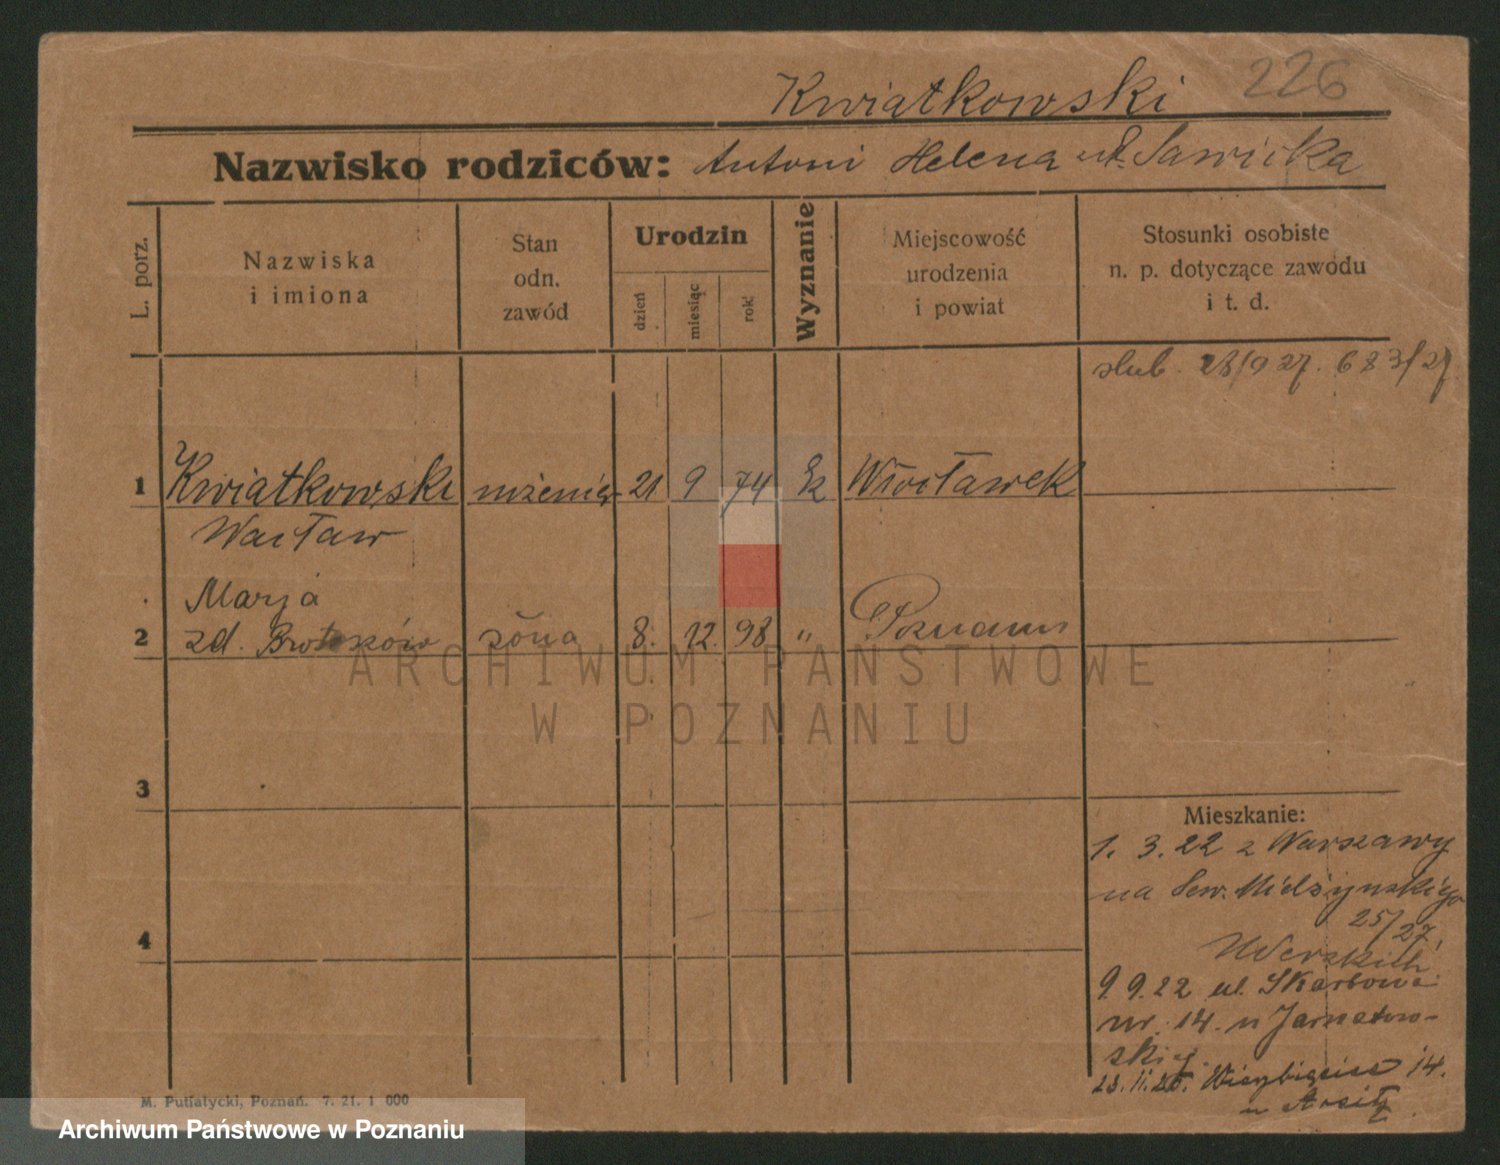 Kwiatkowski 226
Nazwisko rodziców: Antoni Helena Sawicka
L. porz.
Nazwiska
i imiona
Stan
odn.
zawód
Urodzin
dzień
miesiąc
rok
Wyznanie
Miejscowość
urodzenia
i powiat
Stosunki osobiste
n. p. dotyczące zawodu
i t. d.
slub. 28/9 27. 683/27
1 Kwiatkowski 21 9 74 Włocławek
Wacław
Marja
2 zd. żona 8. 12. 98 " Poznań
ARCHIWUM PAŃSTWOWE
W POZNANIU
3
Mieszkanie:
1. 3. 22 z Warszawy
na Sew. Mielżyńskiego
25/27
4
9. 9. 22 ul. Skarbowa
nr. 14. u
14.
u
M. Putiatycki, Poznań. 7. 21. 1 000
Archiwum Państwowe w Poznaniu